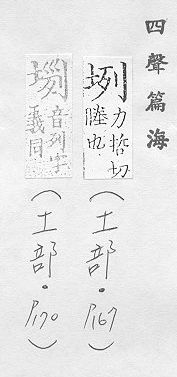 四聲篇海
㘺 力拾切
塍也
(土部·P167)
音列字
義同
(土部·P170)